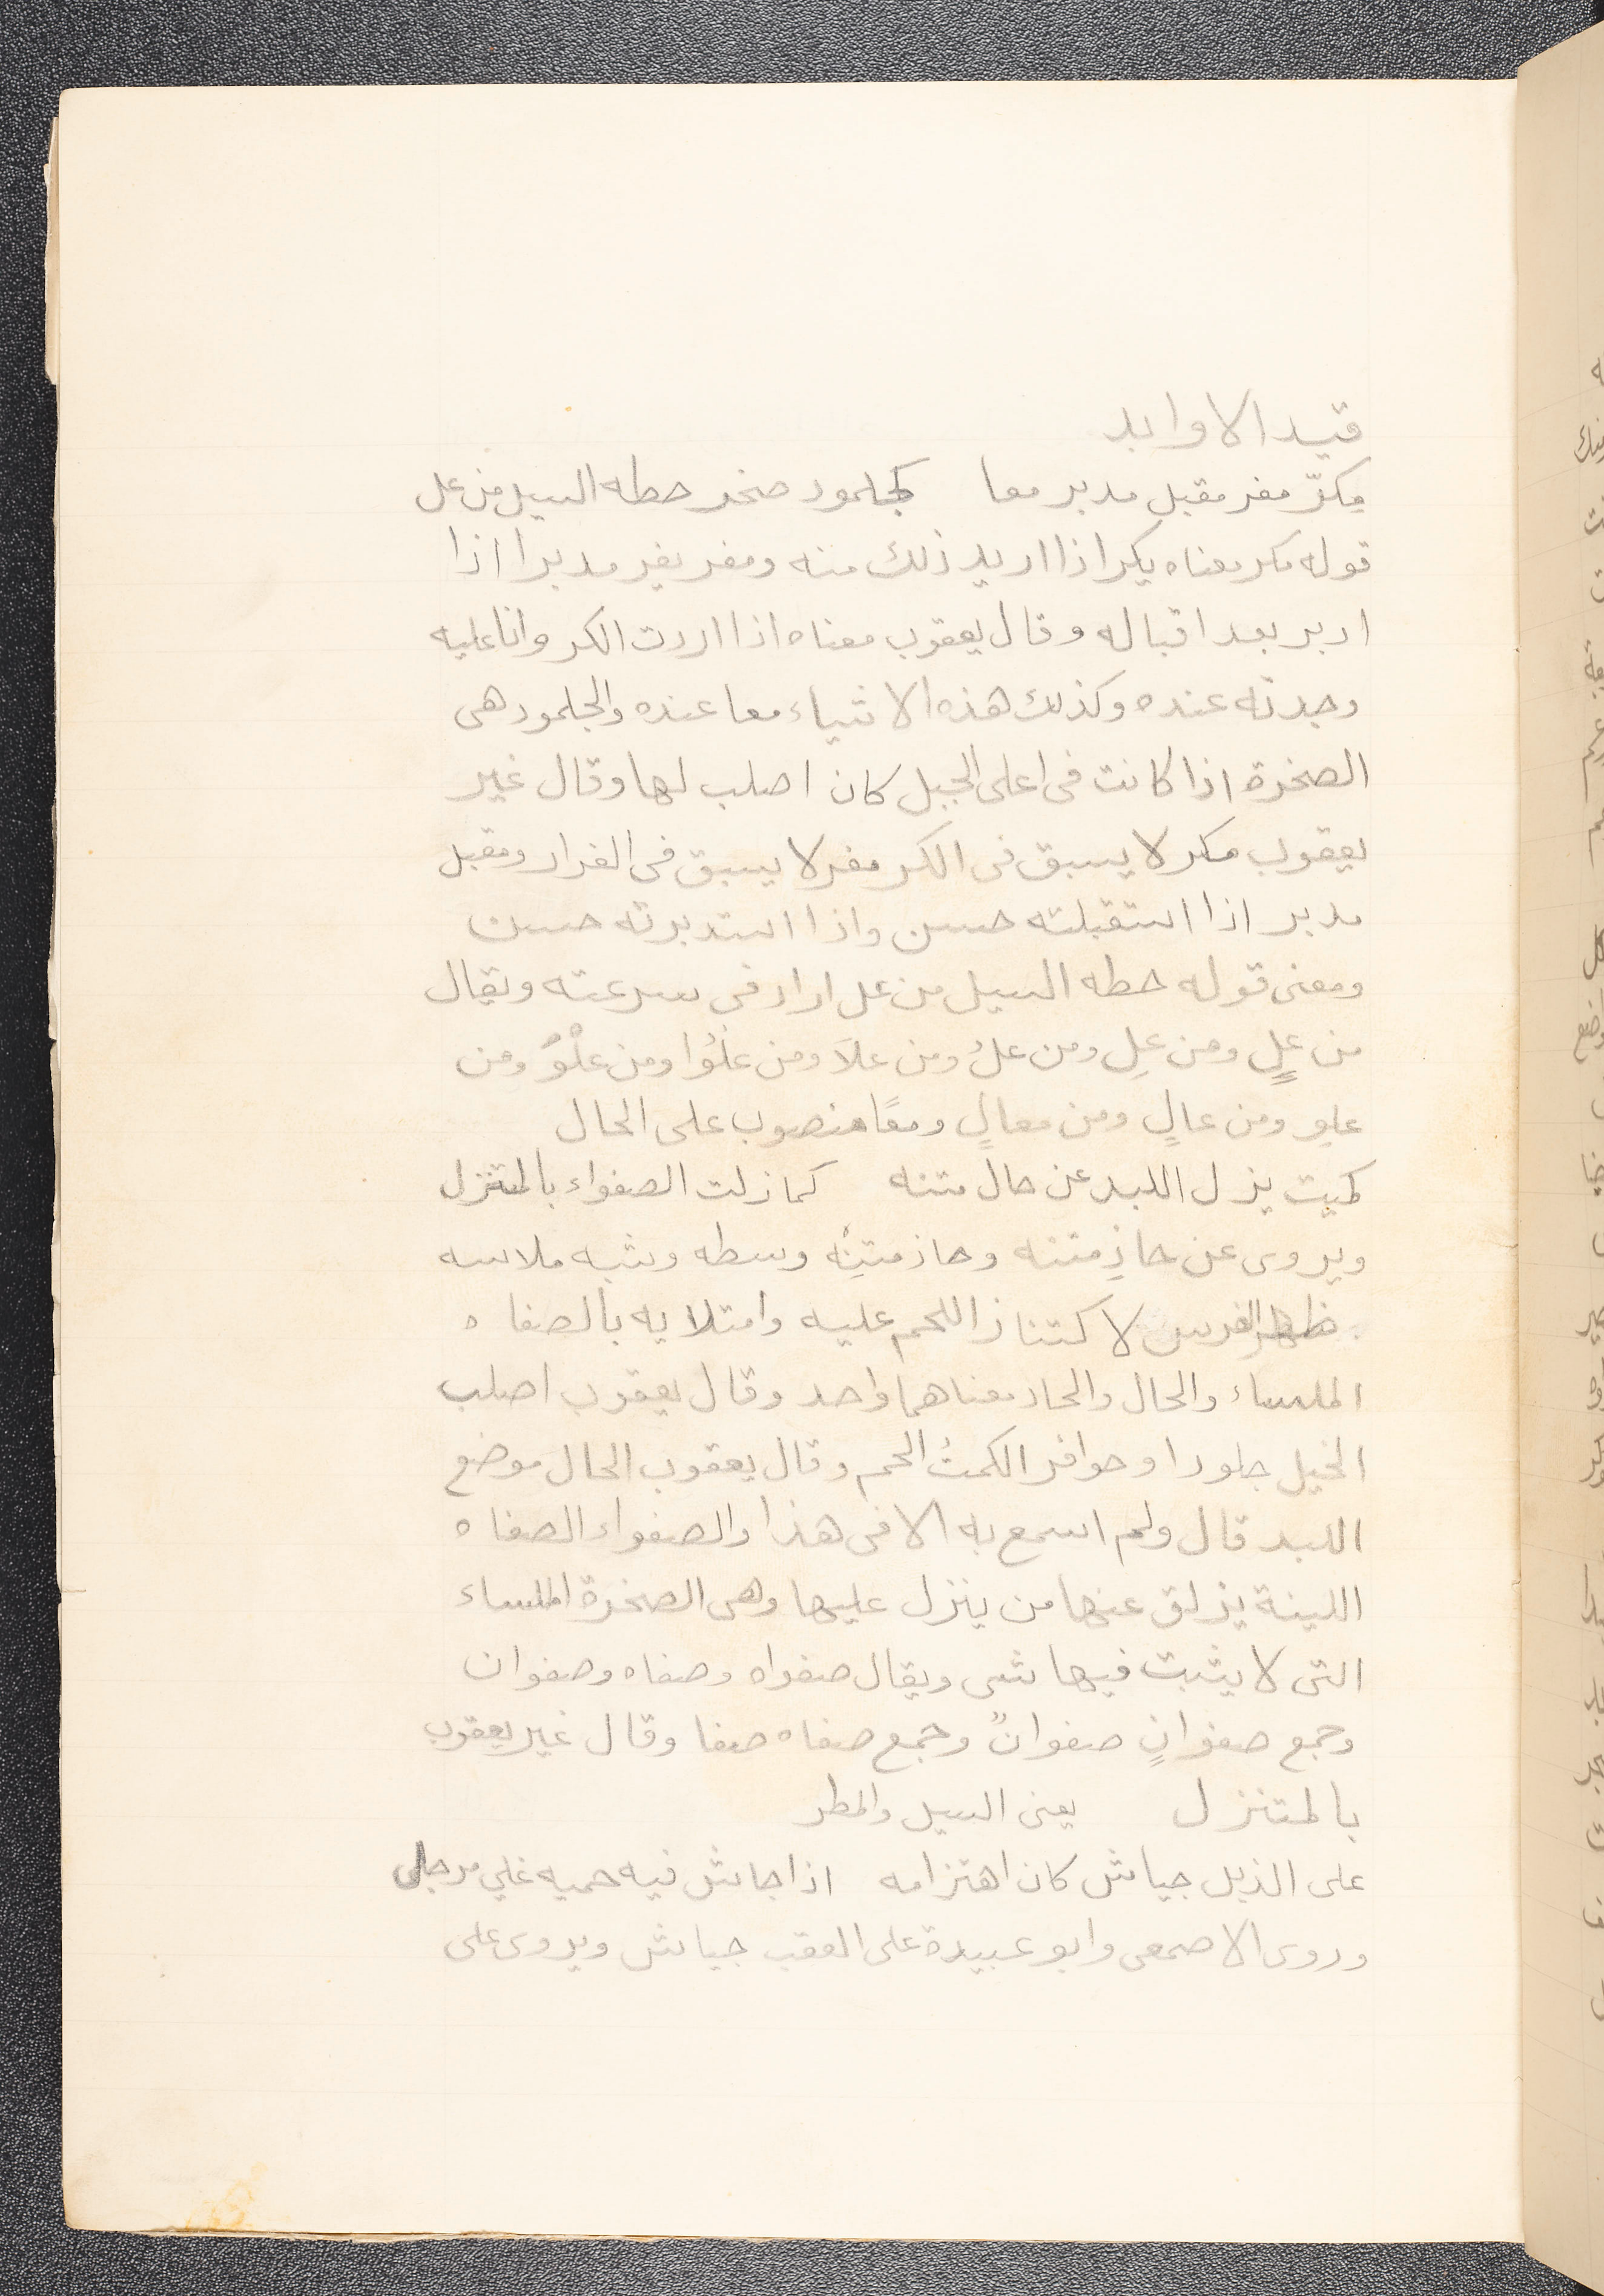 قيد الاوابد
مكرّ مفر مقبل مدبر معا كجلمود صخر حطه السيل من عل
قوله مكر معناه يكر اذا اريد ذلك منه ومفر يفر مدبرا اذا
ادبر بعد اقباله وقال يعقوب معناه اذا اردت الكر وانا عليه
وجدته عنده وكذلك هذه الاشياء معا عنده والجلمود هى
الصخرة اذا كانت فى اعلى الجبل كان اصلب لها وقال غير
يعقوب مكر لا يسبق فى الكر مفر لا يسبق فى الفرار ومقبل
مدبر اذا استقبلته حسن واذا استدبرته حسن
ومعنى قوله حطه السيل من عل اراد فى سرعته ويقال
من علٍ ومن علِ ومن علُ ومن علاَ ومن علوُا ومن علْوُ ومن
علو ومن عالٍ ومن معالٍ ومعًا منصوب على الحال
كميت يزل اللبد عن حال متنه كما زلت الصفواء بالمتنزل
ويروى عن حاذِ متنه وحاذ متنِه وسطه وشبه ملاسه
ظهر الفرس لاكتناز اللحم عليه وامتلايه بالصفاه
الملساء والحال والحاذ معناهما واحد وقال يعقوب اصلب
الخيل جلودا وحوافر الكمتُ الحم وقال يعقوب الحال موضع
اللبد قال ولم اسمع به الا فى هذا والصفواء الصفاه
اللينة يزلق عنها من ينزل عليها وهى الصخرة الملساء
التى لا يثبت فيها شى ويقال صفواه وصفاه وصفوان
وجمع صفوانٍ صفوانٌ وجمع صفاه صفا وقال غير يعقوب
بالمتنزل يعنى السيل والمطر
على الذبل جياش كان اهتزامه اذا جاش فيه حميه غلي مرجل
وروى الاصمعى وابو عبيدة على العقب جياش ويروى على